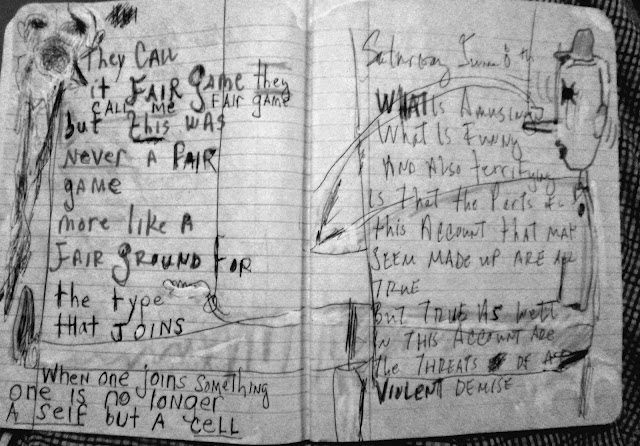 They CALL
it FAIR game they
CALL me FAIR game
but this WAS
never A PAIR
game
more like A
FAIR ground FOR
the type
that JOINS
When one joins something
one is no longer
A self but A cell
Saturday June 6th
WHAT Is Amusing
What Is Funny
AND Also terrifying
Is That the Parts
this Account that may
SEEM MADE UP ARE ALL
TRUE
But TRUE AS well
IN THIS ACCOUNT ARE
the THREATS OF A
VIOLENT DEMISE